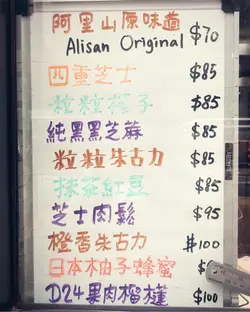 阿里山原味道
Alisan Original $70
四重芝士 $85
粒粒榛子 $85
純黑黑芝蔴 $85
粒粒朱古力 $85
抹茶紅豆 $85
芝士肉鬆 $95
橙香朱古力 $100
日本柚子蜂蜜 $
D24果肉榴槤 $100